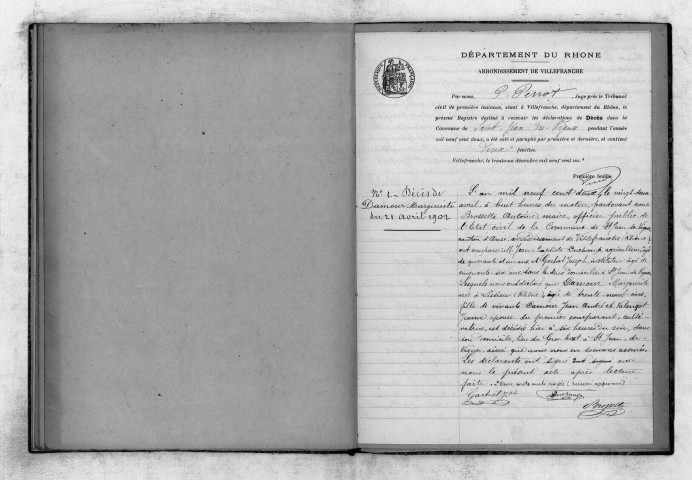 DÉPARTEMENT DU RHONE
ARRONDISSEMENT DE VILLEFRANCHE
RÉPUBLIQUE FRANÇAISE
Par nous, P. Perrot, Juge près le Tribunal
civil de première instance, séant à Villefranche, département du Rhône, le
présent Registre destiné à recevoir les déclarations de Décès dans la
Commune de Saint Jean des Vignes pendant l'année
mil neuf cent deux, a été coté et paraphé par première et dernière, et contient
Deux feuilles.
Villefranche, le trente-un décembre mil neuf cent un.
Première feuille
No 1. - Décès de
Damour Marguerite
du 21 avril 1902
L'an mil neuf cent deux, le vingt deux
avril, à huit heures du matin, pardevant nous
Brossette Antoine, maire, officier public de
l'État civil de la Commune de St Jean des Vignes
canton d'Anse, arrondissement de Villefranche (Rhône)
ont comparu M. Jean Baptiste Duchamp agriculteur, âgé
de quarante et un ans et Gachot Joseph, instituteur âgé de
cinquante six ans, tous les deux domiciliés à St Jean des Vignes
Lesquels nous ont déclaré que Damour Marguerite
née à (Rhône), âgée de trente neuf ans,
fille de vivants Damour Jean André et
Jeanne épouse du premier comparant, culti-
vatrice, est décédée hier à six heures du soir, dans
son domicile, lieu de à St Jean-des-
Vignes, ainsi que nous nous en sommes assurés.
Les déclarants ont signé avec
nous le présent acte après lecture
faite.
Gachot Duchamp
Brossette